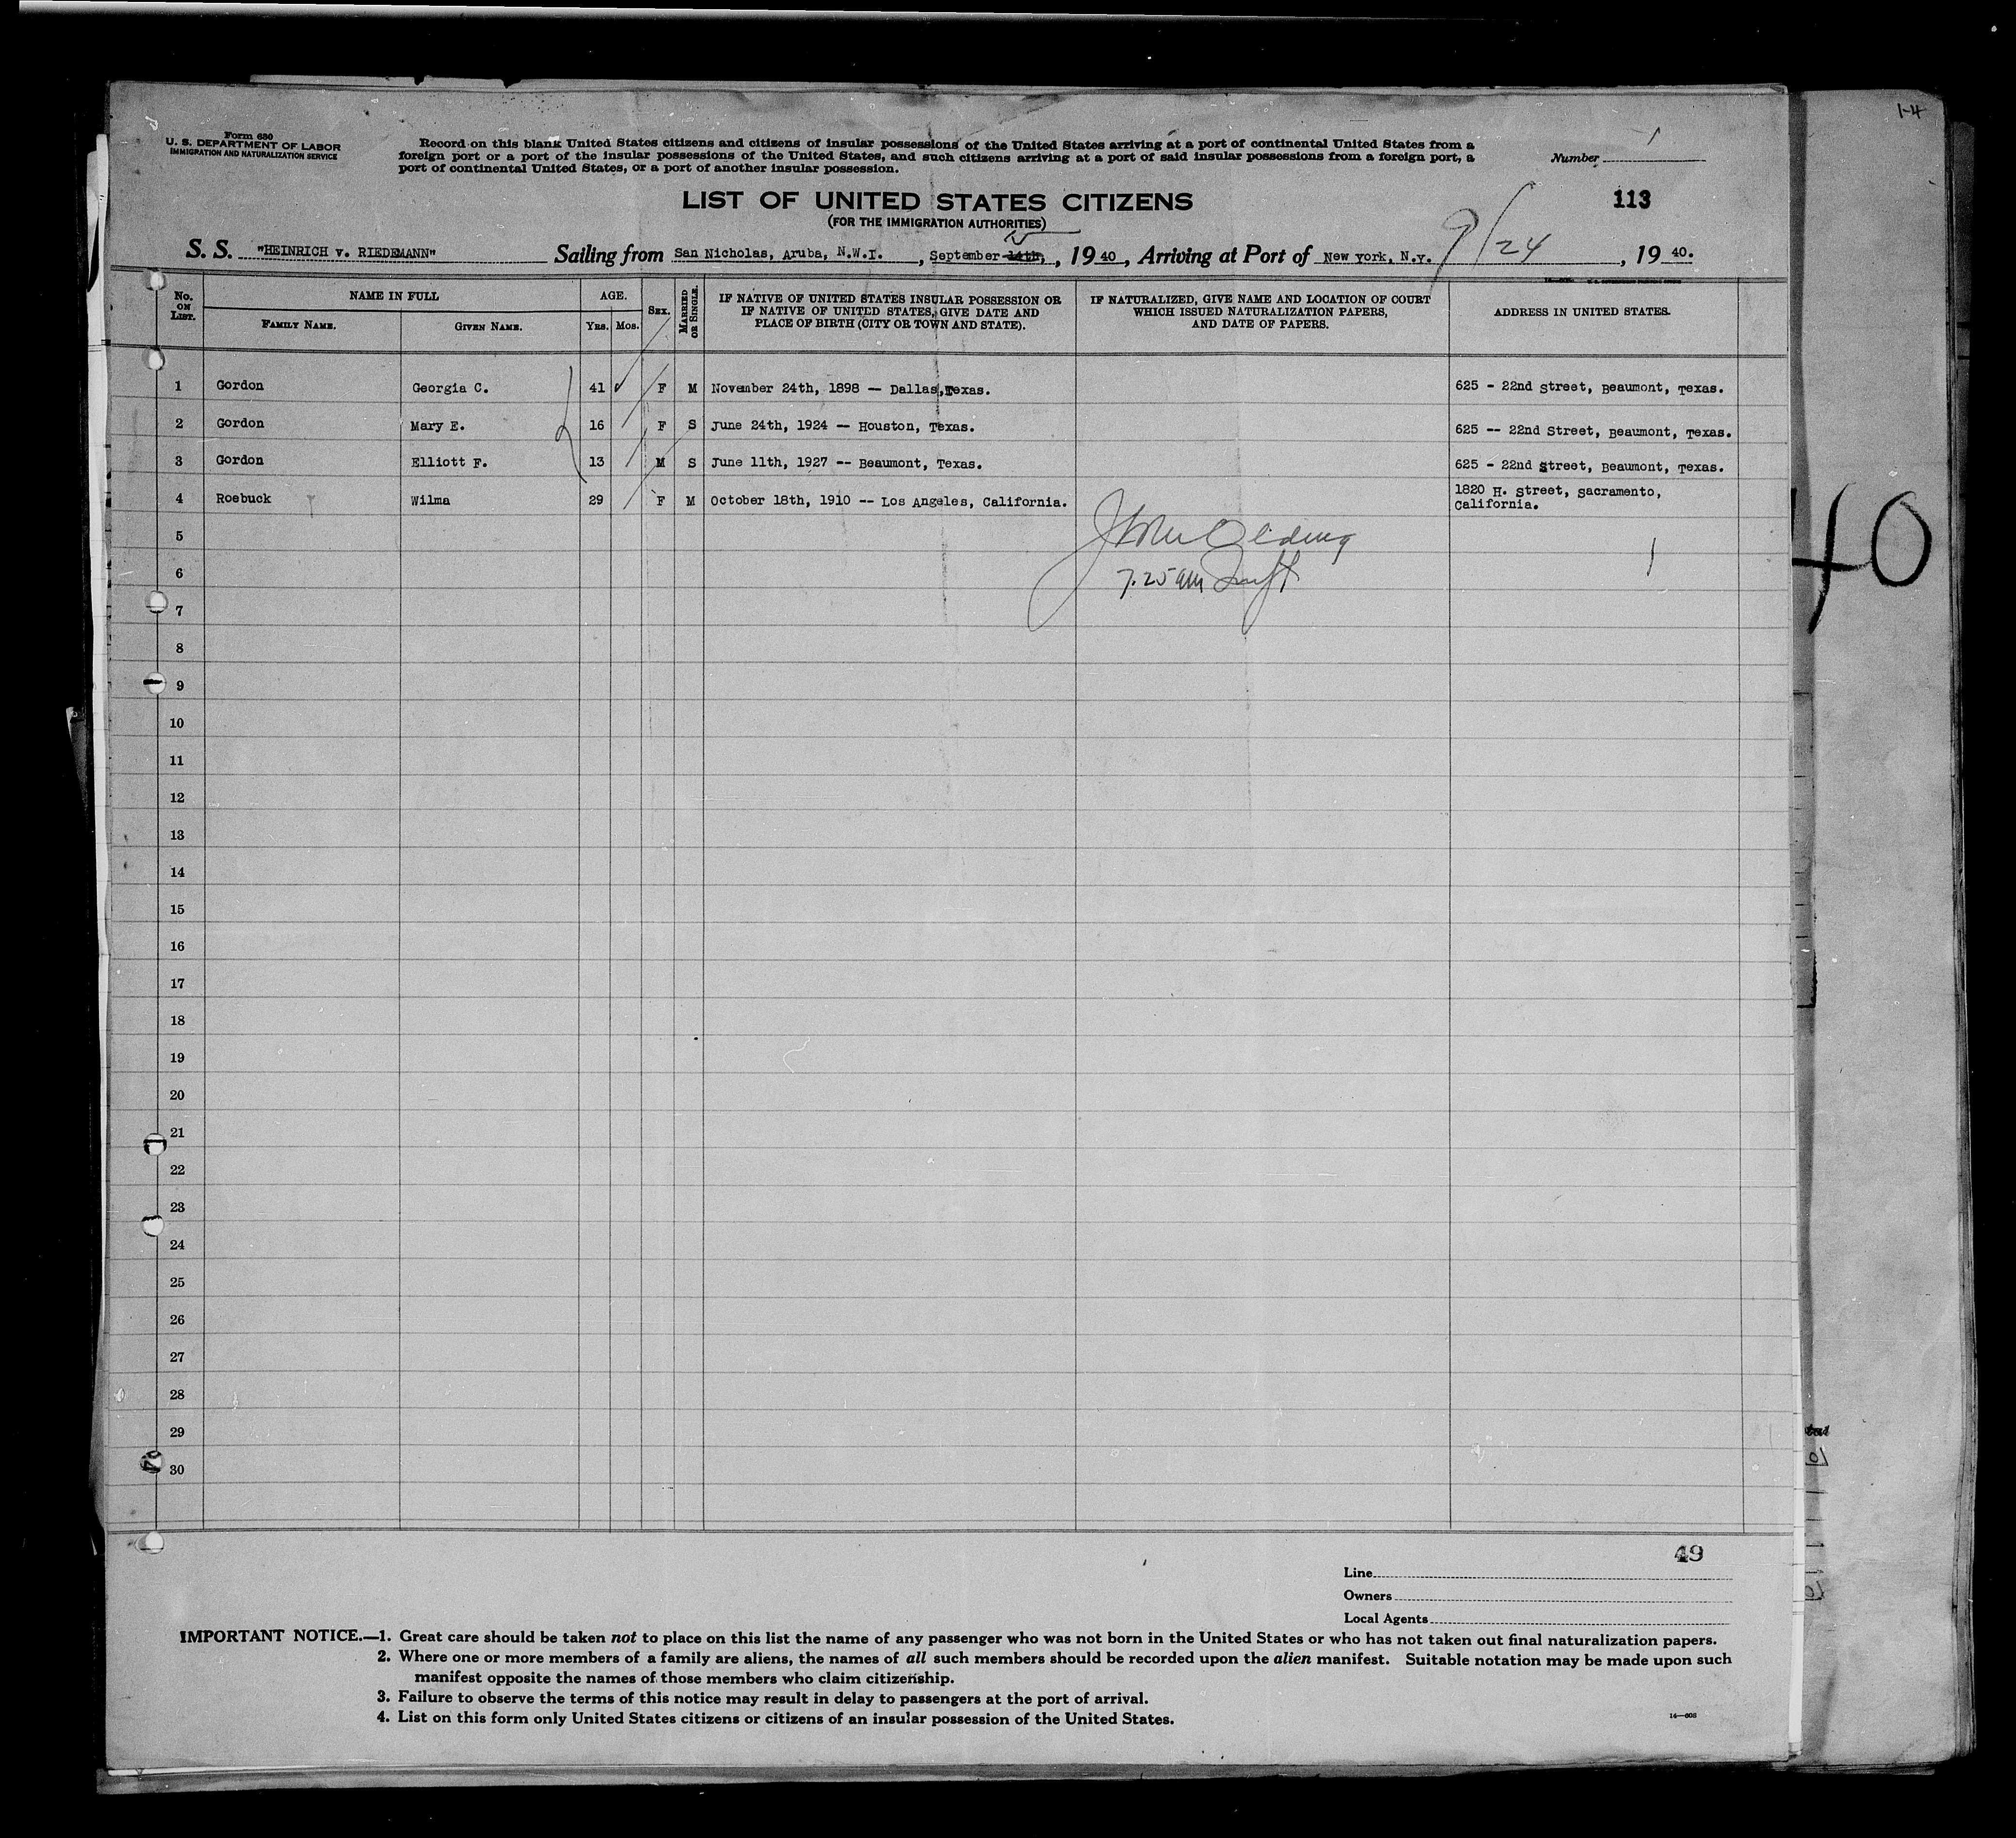 1-4
Form 630
U. S. DEPARTMENT OF LABOR
IMMIGRATION AND NATURALIZATION SERVICE
Record on this blank United States citizens and citizens of insular possessions of the United States arriving at a port of continental United States from a
foreign port or a port of the insular possessions of the United States, and such citizens arriving at a port of said insular possessions from a foreign port, a
port of continental United States, or a port of another insular possession.
Number 1
LIST OF UNITED STATES CITIZENS
(FOR THE IMMIGRATION AUTHORITIES)
113
S. S. "HEINRICH v. RIEDEMANN" Sailing from San Nicholas, Aruba, N.W.I. , September 14th, , 19 40 , Arriving at Port of New York, N.Y. 9/24 , 19 40.
No. ON LIST. NAME IN FULL AGE. SEX. MARRIED OR SINGLE. IF NATIVE OF UNITED STATES INSULAR POSSESSION OR IF NATIVE OF UNITED STATES, GIVE DATE AND PLACE OF BIRTH (CITY OR TOWN AND STATE). IF NATURALIZED, GIVE NAME AND LOCATION OF COURT WHICH ISSUED NATURALIZATION PAPERS, AND DATE OF PAPERS. ADDRESS IN UNITED STATES.
FAMILY NAME. GIVEN NAME. YRS. MOS.
1 Gordon Georgia C. 41 F M November 24th, 1898 — Dallas, Texas. 625 - 22nd Street, Beaumont, Texas.
2 Gordon Mary E. 16 F S June 24th, 1924 -- Houston, Texas. 625 -- 22nd Street, Beaumont, Texas.
3 Gordon Elliott F. 13 M S June 11th, 1927 -- Beaumont, Texas. 625 - 22nd Street, Beaumont, Texas.
4 Roebuck Wilma 29 F M October 18th, 1910 -- Los Angeles, California. 1820 H. Street, Sacramento,
California.
40
5
6 7.25 am
1
7
8
9
10
11
12
13
14
15
16
17
18
19
20
21
22
23
24
25
26
27
28
29
30
49
Line
Owners
Local Agents
IMPORTANT NOTICE.—1. Great care should be taken not to place on this list the name of any passenger who was not born in the United States or who has not taken out final naturalization papers.
2. Where one or more members of a family are aliens, the names of all such members should be recorded upon the alien manifest. Suitable notation may be made upon such
manifest opposite the names of those members who claim citizenship.
3. Failure to observe the terms of this notice may result in delay to passengers at the port of arrival.
4. List on this form only United States citizens or citizens of an insular possession of the United States.